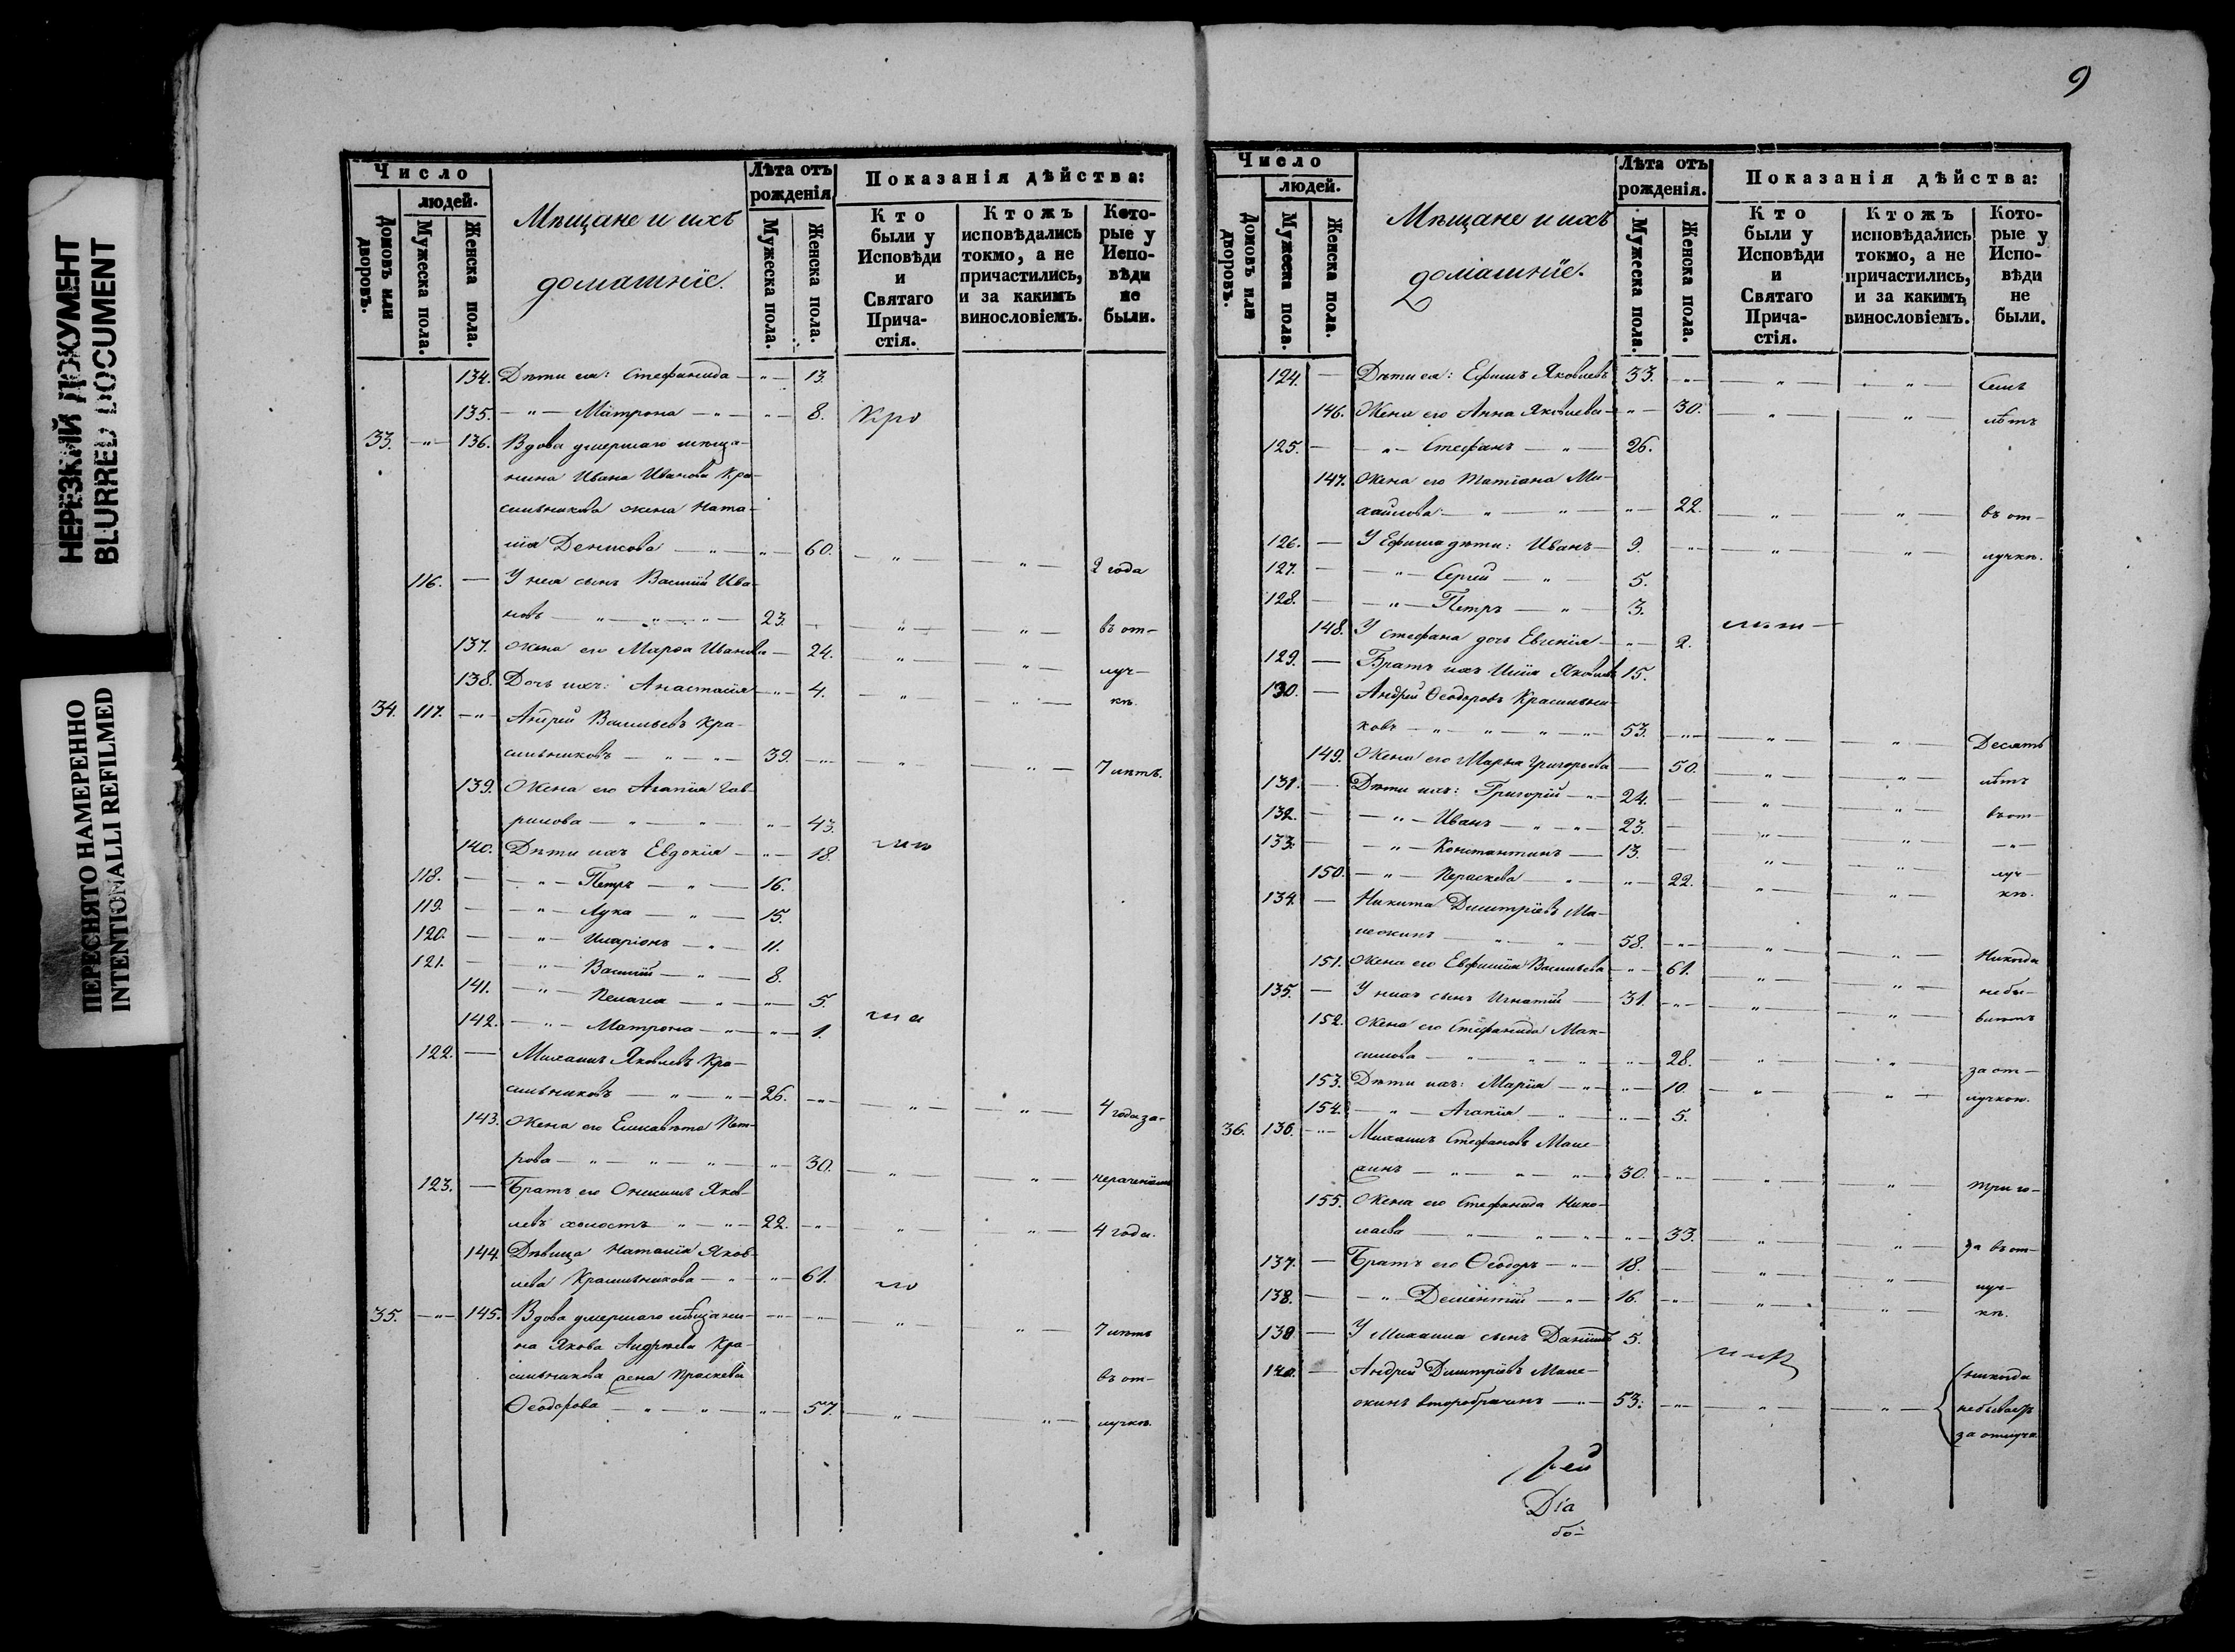 НЕРЕЗКИЙ ДОКУМЕНТ
BLURRED DOCUMENT
ПЕРЕСНЯТО НАМЕРЕННО
INTENTIONALLI REFILMED
Число
людей.
Домовъ или дворовъ.
Мужеска пола.
Женска пола.
Мѣщане и ихъ
домашніе.
Лѣта отъ рожденія
Мужеска пола.
Женска пола.
Показанія дѣйства:
Кто были у Исповѣди и Святаго Прича-стія.
Ктожъ исповѣдались токмо, а не причастились, и за какимъ винословіемъ.
Кото-рые у Испо-вѣди не были.
134. Дѣти ея: Стефанида — " — 13.
135. — " — Матрона — " — " — 8.
33. — " — 136. Вдова умершаго мѣща-
нина Ивана Иванова Кра-
сильникова жена Ната-
лія Денисова — " — " — 60. — " — " — 2 года
116. — У нея сынъ Василій Ива-
новъ — " — " — " — 23. — " — " — въ от-
137. Жена его Марѳа Иванова — 24. — " — " — луч-
138. Дочь ихъ: Анастасія — " — 4. — " — " — кѣ.
34. 117. — " — Андрей Васильевъ Кра-
сильниковъ — " — " — 39. — " — " — " — 7 лѣтъ.
139. Жена его Агапія Гав-
рилова — " — " — " — 43.
140. Дѣти ихъ Евдокія — " — 18.
118. — " — Петръ — " — 16.
119. — " — Лука — " — 15.
120. — " — Иларіонъ — " — 11.
121. — " — Василій — " — 8.
141. — " — Пелагія — " — " — 5.
142. — " — Матрона — " — " — 1.
122. — Михаилъ Яковлевъ Кра-
сильниковъ — " — " — 26. — " — " — " — 4 года за-
143. Жена его Елисавета Пет-
рова — " — " — " — " — 30. — " — " — нераченіемъ
123. — Братъ его Онисимъ Яков-
левъ холостъ — " — " — 22. — " — " — " — 4 года.
144. Дѣвица Наталія Яков-
лева Красильникова — " — " — 61.
35. — " — 145. Вдова умершаго мѣщани- — " — " — " — " — 7 лѣтъ
на Якова Андреева Кра-
сильникова жена Праскева въ от-
Ѳеодорова — " — " — " — 57. — " — " — лучкѣ.
9
Число
людей.
Домовъ или дворовъ.
Мужеска пола.
Женска пола.
Мѣщане и ихъ
домашніе.
Лѣта отъ рожденія.
Мужеска пола.
Женска пола.
Показанія дѣйства:
Кто были у Исповѣди и Святаго Прича-стія.
Ктожъ исповѣдались токмо, а не причастились, и за какимъ винословіемъ.
Кото-рые у Испо-вѣди не были.
124. — Дѣти ея: Ефимъ Яковлевъ 33. — " — " — " — Семь
146. Жена его Анна Яковлева — " — 30. — " — " — лѣтъ
125. — " — Стефанъ — " — 26.
147. Жена его Татіана Ми-
хайлова — " — " — " — 22. — " — " — въ от-
126. — У Ефима дѣти: Иванъ — 9. — " — " — " — лучкѣ.
127. — " — Сергій — " — 5.
128. — " — Петръ — " — 3.
148. У Стефана дочь Евгенія — " — 2.
129. — Братъ ихъ Илія Яковлевъ 15.
130. — Андрей Ѳеодоровъ Красильни-
ковъ — " — " — " — " — 53. — " — " — " — Десять
149. Жена его Марѳа Григорьева — 50. — " — " — лѣтъ
131. — Дѣти ихъ: Григорій — " — 24. — " — " — въ от-
132. — " — Иванъ — " — " — 23. — " — " — " —
133. — " — Константинъ — 13. — " — " — луч-
150. — " — Параскева — " — " — 22. — " — " — кѣ.
134. — Никита Димитріевъ Ма-
неокинъ — " — " — 58. — " — " — " — Никогда
151. Жена его Евфимія Васильева — " — 61. — " — " — небы-
135. — У нихъ сынъ Игнатій — 31. — " — " — " —
152. Жена его Стефанида Мак-
симова — " — " — " — " — 28. — " — " — за от-
153. Дѣти ихъ: Марія — " — " — 10. — " — " — лучкою.
154. — " — Агапія — " — " — 5.
36. 136. — " — Михаилъ Стефановъ
30. — " — " — " — три го-
155. Жена его Стефанида Нико-
лаева — " — " — " — " — 33. — " — " — да въ от-
137. — Братъ его Ѳеодоръ — " — 18. — " — " — луч-
138. — " — Дементій — " — 16. — " — " — " — кѣ.
139. — У Михаила сынъ Даніилъ 5.
140. — Андрей Димитріевъ никогда
второбрачнъ — " — 53. — " — " — " — небываетъ
за отлуч.
Діа